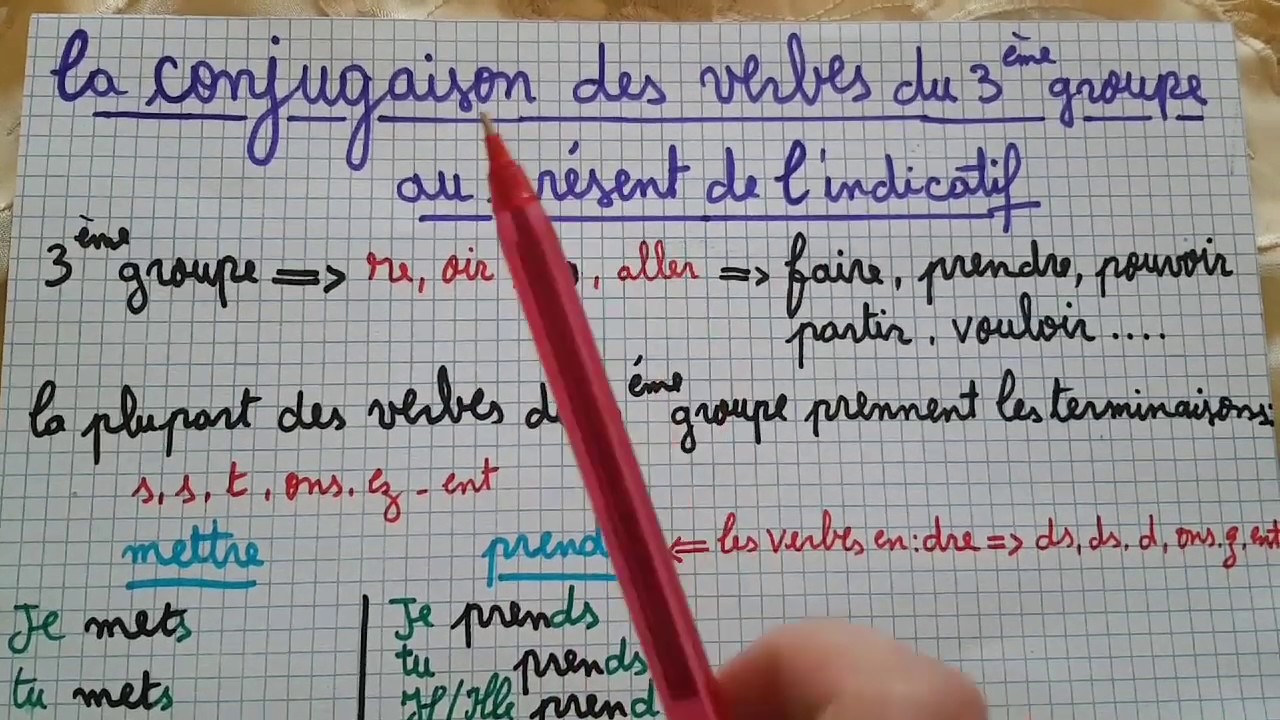 la conjugaison des verbes du 3ème groupe
au résent de l'indicatif
3ème groupe => re, oir , aller => faire, prendre, pouvoir
partir, vouloir ....
la plupart des verbes d ème groupe prennent les terminaisons:
s, s, t, ons, ez - ent
mettre prend <= les verbes en: dre => ds, ds, d, ons, ez, ent
Je mets Je prends
tu mets tu prends
Il/Elle prend